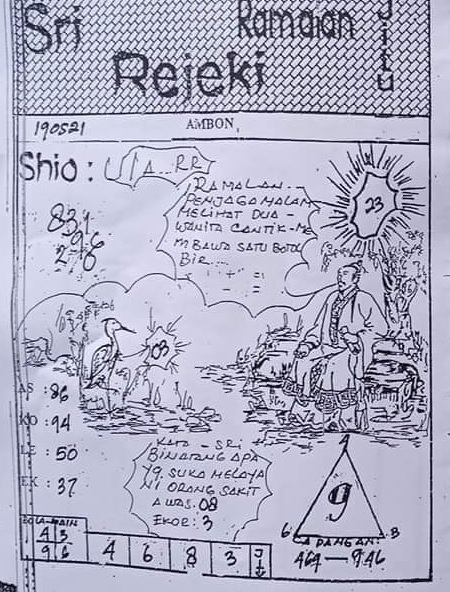 Sri
Ramalan
Rejeki
JITU
190521
AMBON,
Shio: ULA...RR
831
96
RAMALAN...
PENJAGA MALAM
MELIHAT DUA -
WANITA CANTIK-ME
MBAWA SATU BOTOL
BIR...
23
03
AS : 86
KO : 94
LE : 50
EK : 37
KATA - SRI
BINATANG APA
YG SUKA MELAYA
NI ORANG SAKIT
AWAS. 08
EKOR: 3
9
6
8
CADANGAN:
464 — 946
BOLA-MAIN
4 3
9 6
4 6 8 3 JIT